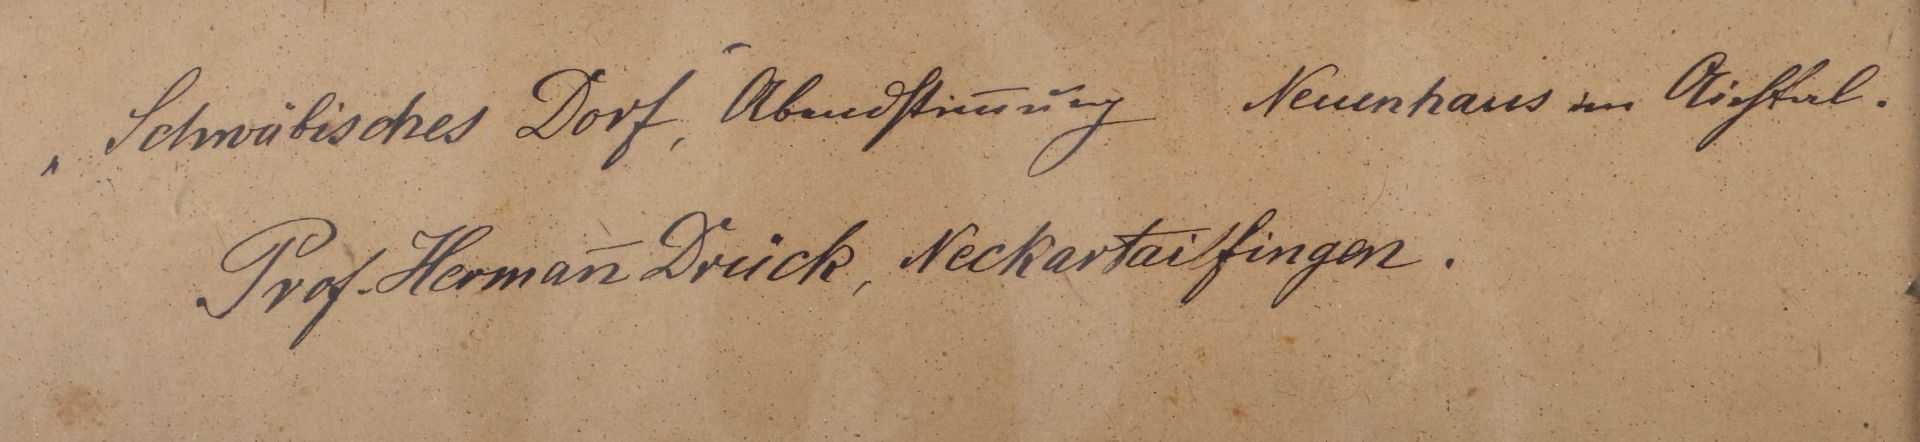 „Schwäbisches Dorf“, Abendstim̄ung Neuenhaus im Aichtal.
Prof. Herman̄ Drück, Neckartailfingen.